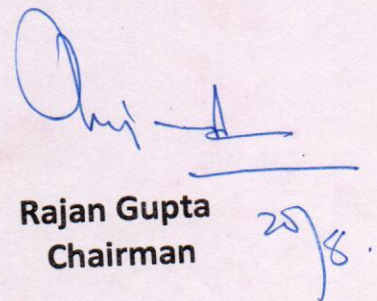 Rajan Gupta
Chairman
20/8.